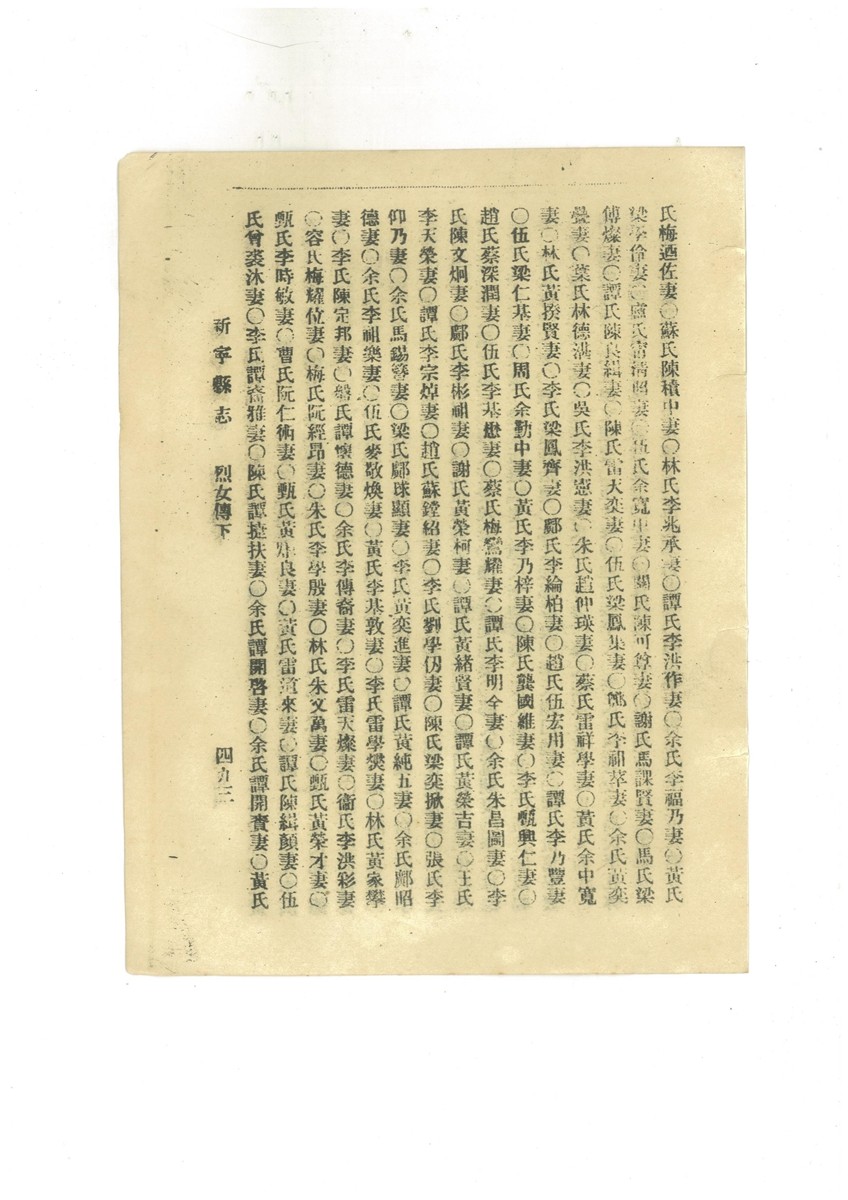 氏梅迺佐妻〇蘇氏陳積中妻〇林氏李兆承妻〇譚氏李洪作妻〇余氏李福乃妻〇黃氏
梁學伶妻〇盧氏甯清照妻〇伍氏余寬中妻〇關氏陳可尊妻〇謝氏馬課賢妻〇馬氏梁
傅燦妻〇譚氏陳良緝妻〇陳氏雷天奕妻〇伍氏梁鳳集妻〇氏李祖萃妻〇余氏黃奕
妻〇葉氏林德洪妻〇吳氏李洪憲妻〇朱氏趙仲瑛妻〇蔡氏雷祥學妻〇黃氏余中寬
妻〇林氏黃揆賢妻〇李氏梁鳳齊妻〇鄺氏李綸柏妻〇趙氏伍宏用妻〇譚氏李乃豐妻
〇伍氏梁仁基妻〇周氏余勤中妻〇黃氏李乃梓妻〇陳氏龔國維妻〇李氏甄興仁妻〇
趙氏蔡深潤妻〇伍氏李基懋妻〇蔡氏梅鸞耀妻〇譚氏李明全妻〇余氏朱昌圖妻〇李
氏陳文炯妻〇鄺氏李彬祖妻〇謝氏黃榮柯妻〇譚氏黃緒賢妻〇譚氏黃榮吉妻〇王氏
李天榮妻〇譚氏李宗焯妻〇趙氏蘇鏜紹妻〇李氏劉學仞妻〇陳氏梁奕掀妻〇張氏李
仰乃妻〇余氏馬錫簪妻〇梁氏鄺球顯妻〇李氏黃奕進妻〇譚氏黃純五妻〇余氏鄺昭
德妻〇余氏李祖樂妻〇伍氏麥敬煥妻〇黃氏李基敦妻〇李氏雷學爕妻〇林氏黃家攀
妻〇李氏陳定邦妻〇盤氏譚懷德妻〇余氏李傳裔妻〇李氏雷天燦妻〇衞氏李洪彩妻
〇容氏梅耀位妻〇梅氏阮經昂妻〇朱氏李學殷妻〇林氏朱文萬妻〇甄氏黃榮才妻〇
甄氏李時敏妻〇曹氏阮仁術妻〇甄氏黃良妻〇黃氏雷道來妻〇譚氏陳緝顏妻〇伍
氏曾裘沐妻〇李氏譚裔雅妻〇陳氏譚挺扶妻〇余氏譚開啓妻〇余氏譚開賚妻〇黃氏
新寧縣志 烈女傳下 四九三